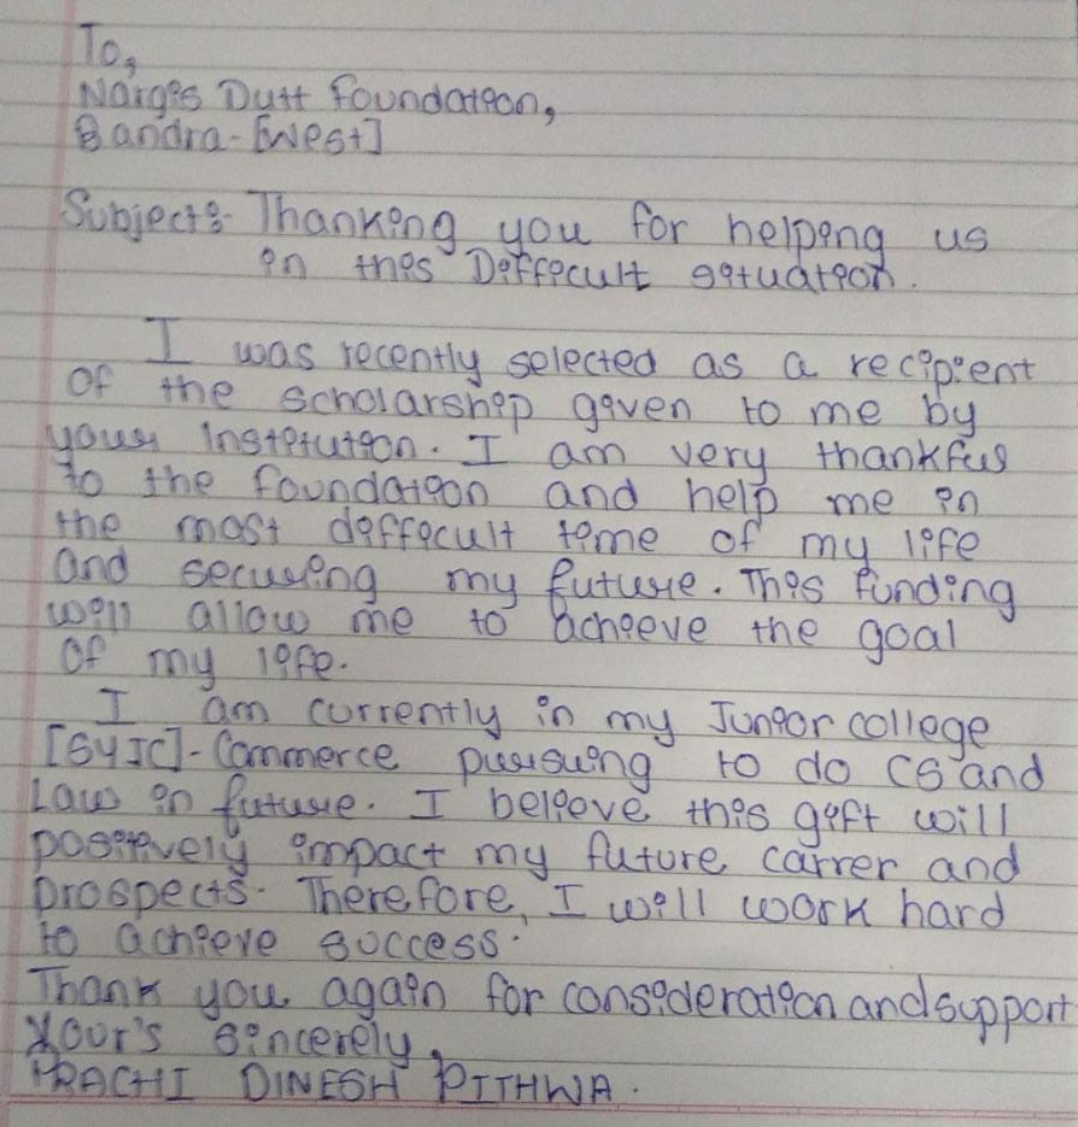 To,
Nargis Dutt Foundation,
Bandra-[West]
Subject:- Thanking you for helping us
in this Difficult situation.
I was recently selected as a recipient
of the scholarship given to me by
your Institution. I am very thankful
to the foundation and help me in
the most difficult time of my life
and securing my future. This funding
will allow me to acheeve the goal
of my life.
I am currently in my Junior college
[SYJC]-Commerce pursuing to do CS and
Law in future. I belieave this gift will
positively impact my future carrer and
prospects. Therefore, I will work hard
to achieve success.
Thank you again for consideration and support
Your's sincerely,
PRACHI DINESH PITHWA.